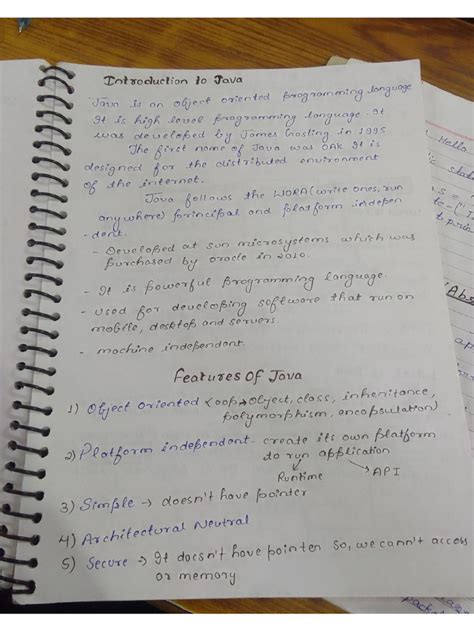 Introduction to Java
Java is an object oriented programming language
It is high level programming language. It
was developed by James Gosling in 1995
The first name of Java was Oak It is
designed for the distributed environment
of the internet.
Java follows the WORA (write ones, run
anywhere) principal and platform indepen
- dent.
- Developed at sun microsystems which was
purchased by oracle in 2010.
- It is powerful programming language.
- used for developing software that run on
mobile, desktop and servers.
- machine independent.
Features Of Java
1) Object Oriented (oop→Object, class, inheritance,
polymorphism, encapsulation)
2) Platform independent - create its own platform
to run application
Runtime API
3) Simple → doesn't have pointer
4) Architectural Neutral
5) Secure → It doesn't have pointer so, we cann't access
or memory
Hello